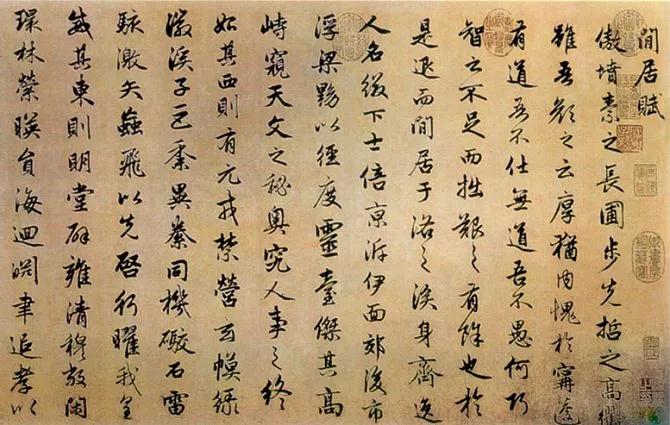 閒居賦
傲墳素之長圃步先哲之高衢
雖吾顏之云厚猶内愧於甯蘧
有道吾不仕無道吾不愚何巧
智之不足而拙艱之有餘也於
是退而閒居于洛之涘身齊逸
人名綴下士倍京泝伊面郊後市
浮梁黝以徑度靈臺傑其高
峙窺天文之秘奥究人事之終
始其西則有元戎禁營玄幙綠
徽溪子巨黍異絭同機礮石雷
駭激矢蝱飛以先啓行曜我皇
威其東則明堂辟雍清穆敞閑
環林縈暎員海迴淵聿追孝以